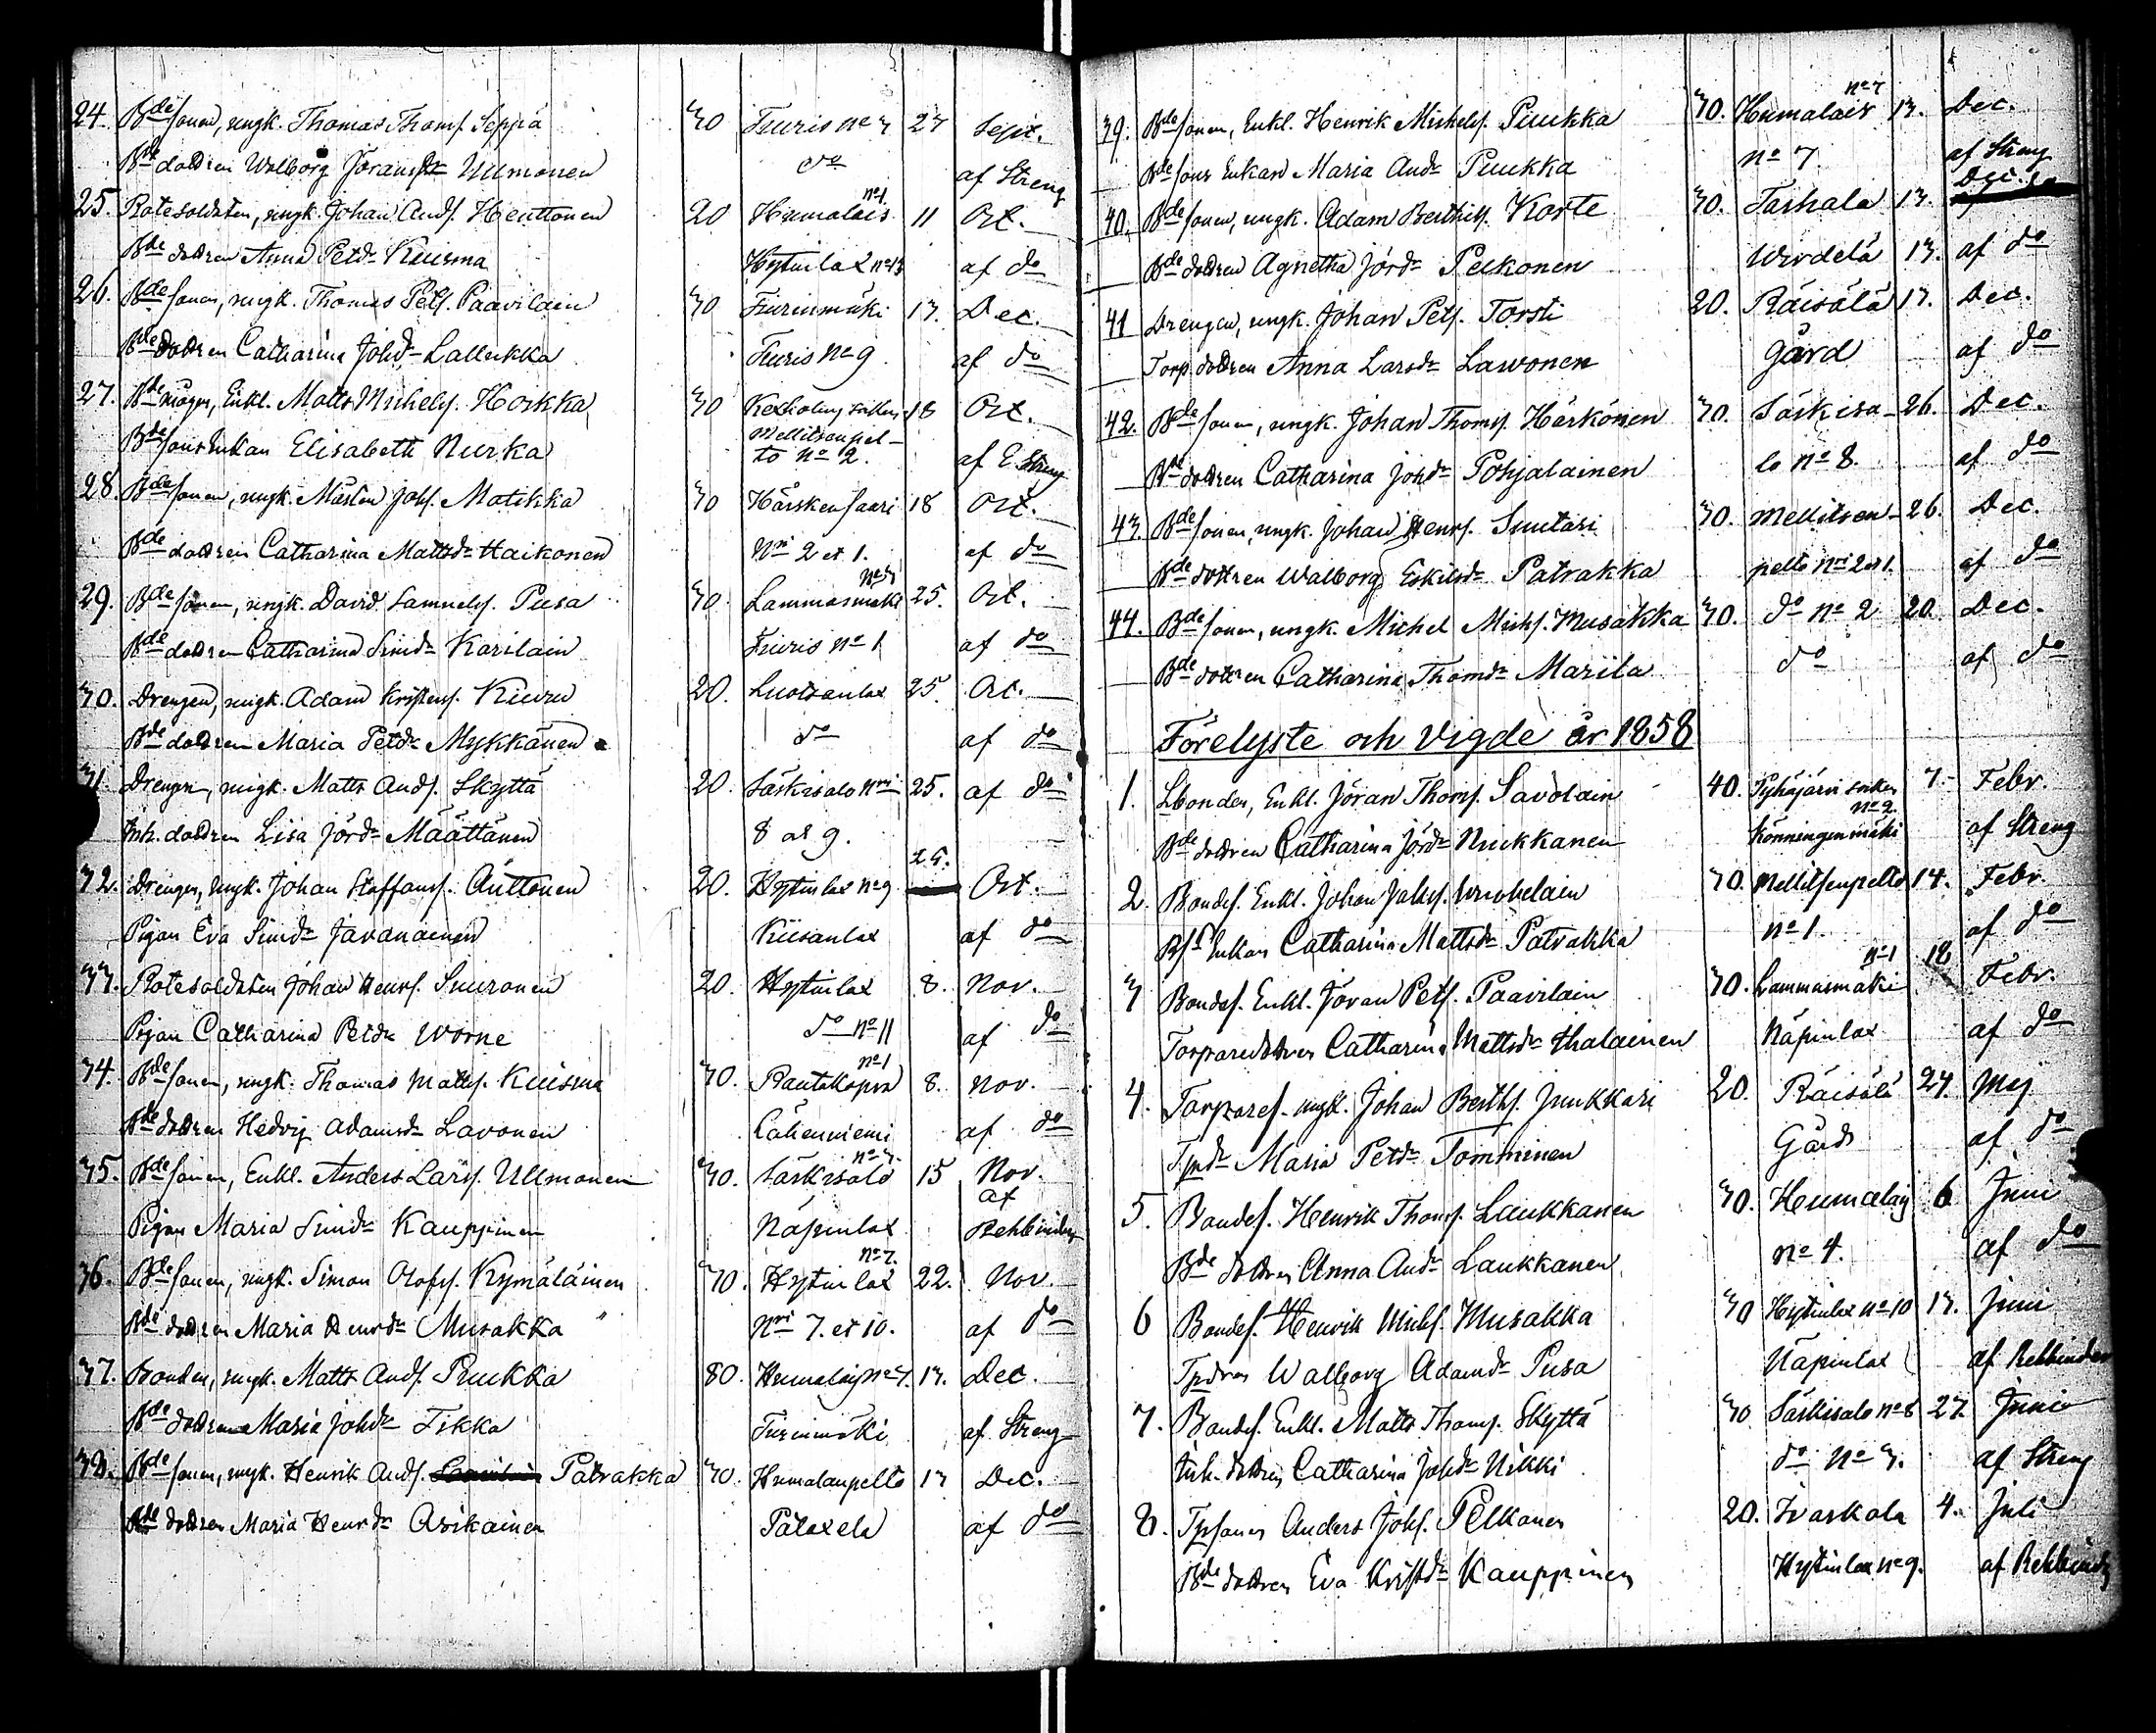 24. Bdesonen, ungk. Thomas Thomss. Seppä 30 Tiuris no 3 27 Sept.
Bde dottren Walborg Jöransdr Ullmonen do af Streng
25. Rotesoldaten, ungk. Johan Ands. Henttonen 20 Humalais no 1 11 Oct.
Bde dottren Anna Petdr Kuisma Hytinlax no 13 af do
26. Bdesonen, ungk. Thomas Pets. Paavilain 30 Tiurinmäki 13. Dec.
Bde dottren Catharina Johdr Lallukka Tiuris no 9 af do
27. Bdemågen, Enkl. Matts Michels. Hoikka 30 Kexholms socken 18 Oct.
Bdesons Enkan Elisabeth Nurka Mellitsenpelto no 2. af E Streng
28. Bdesonen, ungk. Mårten Johs. Matikka 30 Härskensaari 18 Oct.
Bde dottren Catharina Mattsdr Haikonen Nri 2 et 1. af do
29. Bdesonen, ungk. David Samuels. Pusa 30 Lammasmäki no 3 25. Oct.
Bde dottren Catharina Simdr Karilain Tiuris no 1 af do
30. Drengen, ungk. Adam Kristers. Kiuru 20. Luotsanlax 25. Oct.
Bde dottren Maria Petdr Mykkänen do af do
31. Drengen, ungk. Matts Ands. Skyttä 20. Särkisalo nri 25. af do
Inh. dottren Lisa Jördr Määttänen 8 et 9.
32. Drengen, ungk. Johan Staffans. Auttonen 20. Hytinlax no 9 25. Oct.
Pigan Eva Simdr Javanainen Kiisanlax af do
33. Rotesoldaten Johan Henrs. Suuronen 20. Hytinlax 8. Nov.
Pigan Catharina Petdr Worne do no 11 af do
34. Bdesonen, ungk. Thomas Matts. Kuisma 30. Rautakopra no 1 8. Nov.
Bde dottren Hedvig Adamsdr Lavonen af do
35. Bdesonen, Enkl. Anders Larss. Ullmonen 30. Särkisalo no 3. 15 Nov.
Pigan Maria Simdr Kauppinen Näpinlax af Rehbinder
36. Bdesonen, ungk. Simon Olofss. Kymäläinen 30. Hytinlax no 7. 22. Nov.
Bde dottren Maria Henrdr Musakka Nri 7. et 10. af do
37. Bonden, ungk. Matts Ands. Puukka 80. Humalais no 7. 13. Dec.
Bde dottren Maria Johdr Tikka Tiurinmäki af Streng
38. Bdesonen, ungk. Henrik Ands. Patrakka 30. Humalanpelto 13 Dec.
Bde dottren Maria Henrdr Asikainen af do
39. Bdesonen, Enkl. Henrik Michels. Puukka 30. Humalais no 7 13. Dec.
Bdesons Enkan Maria Andr Puukka no 7. af Streng
40. Bdesonen, ungk. Adam Berthils. Korte 30. Tarhala 13. Dec.
Bde dottren Agnetha Jördr Pelkonen 13. af do
41 Drengen, ungk. Johan Pets. Torsti 20. Räisälä 13. Dec.
Torp. dottren Anna Larsdr Lawonen Gård af do
42. Bdesonen, ungk. Johan Thomss. Härkönen 30. Särkisa- 26. Dec.
Bde dottren Catharina Johdr Pohjalainen lo no 8. af do
43. Bdesonen, ungk. Johan Henrs. Suutari 30. Mellitsen- 26. Dec.
Bde dottren Walborg Eskilsdr Patrakka pelto nri 2 et 1. af do
44. Bdesonen, ungk. Michel Michs. Musakka 30. do no 2 20. Dec.
Bde dottren Catharina Thomdr Mariila do af do
Förelyste och Vigde år 1858
1. Lbonden, Enkl. Jöran Thoms. Savolain 40. Pyhäjärvi socken 7. Febr.
Bde dottren Catharina Jördr Nuikkanen Könningenmäki no 2. af Streng
2. Bondes. Enkl. Johan Jakss. 30. Mellitsenpelto 14. Febr.
Bss Enkan Catharina Mattsdr Patrakka no 1. af do
3 Bondes. Enkl. Jöran Pets. Paavilain 30. Lammasmäki no 1 18 Febr.
Torparedottren Catharina Mattsdr Ihalainen Näpinlax af do
4. Torpares. ungk. Johan Berths. Junkkari 20. Räisälä 24. Maj
Tpdr Maria Petdr Tomminen Gård af do
5. Bondes. Henrik Thoms. Laukkanen 30. Humalais 6 Juni
Bde dottren Anna Andr Laukkanen no 4. af do
6 Bondes. Henrik Michs. Musakka 30 Hytinlax no 10 13. Juni
Tpdren Walborg Adamdr Pusa Näpinlax af Rehbinder
7. Bondes. Enkl. Matts Thoms. Skyttä 30 Särkisalo no 8 27. Juni
Inh. dottren Catharina Johdr Nikki do no 3. af Streng
8. Tpsonen Anders Johs. Pelkonen 20. Ivaskala 4. Juli
Bde dottren Eva Kristdr Kauppinen Hytinlax no 9. af Rehbinder